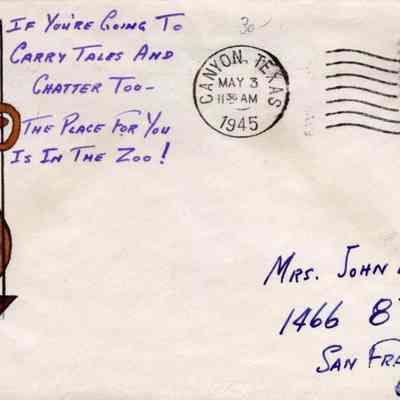 If You're Going To
Carry Tales And
Chatter Too-
The Place For You
Is In The Zoo!
30-
CANYON, TEXAS
MAY 3
11 30 AM
1945
Mrs. John
1466 8
San Fra